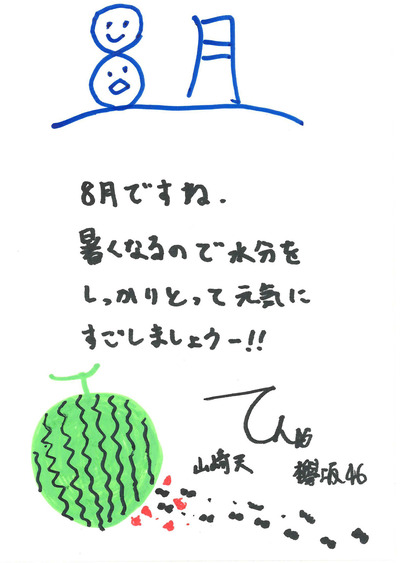 8月
8月ですね.
暑くなるので水分を
しっかりとって元気に
すごしましょうー!!
てん
山﨑天
欅坂46